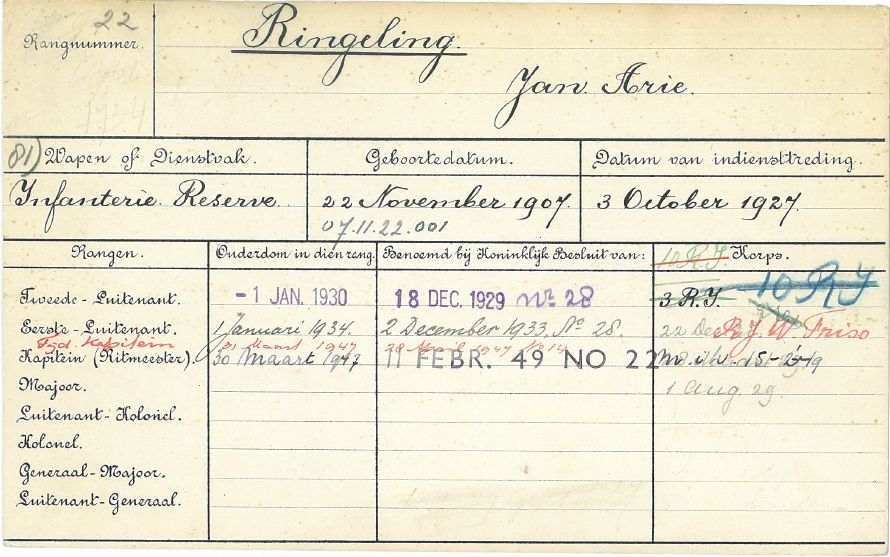 22
Rangnummer.
Ringeling.
Jan Arie.
81) Wapen of Dienstvak.
Geboortedatum.
Datum van indiensttreding.
Infanterie. Reserve
22 November 1907.
3 October 1927.
07.11.22.001
Rangen.
Ouderdom in dien rang.
Benoemd bij Koninklijk Besluit van:
10 R.I. Korps.
10 R I
Tweede-Luitenant.
-1 JAN. 1930
18 DEC. 1929 no. 28
3 R.I.
Eerste-Luitenant.
1 Januari 1934.
2 December 1933, No 28.
22 Dec
R.J.W. Friso
Tijd. Kapitein
31 Maart 1947
No 14
Kapitein (Ritmeester).
30 Maart 1947
11 FEBR. 49 NO 22
Majoor.
1 Aug. 29
Luitenant-Kolonel.
Kolonel.
Generaal-Majoor.
Luitenant-Generaal.